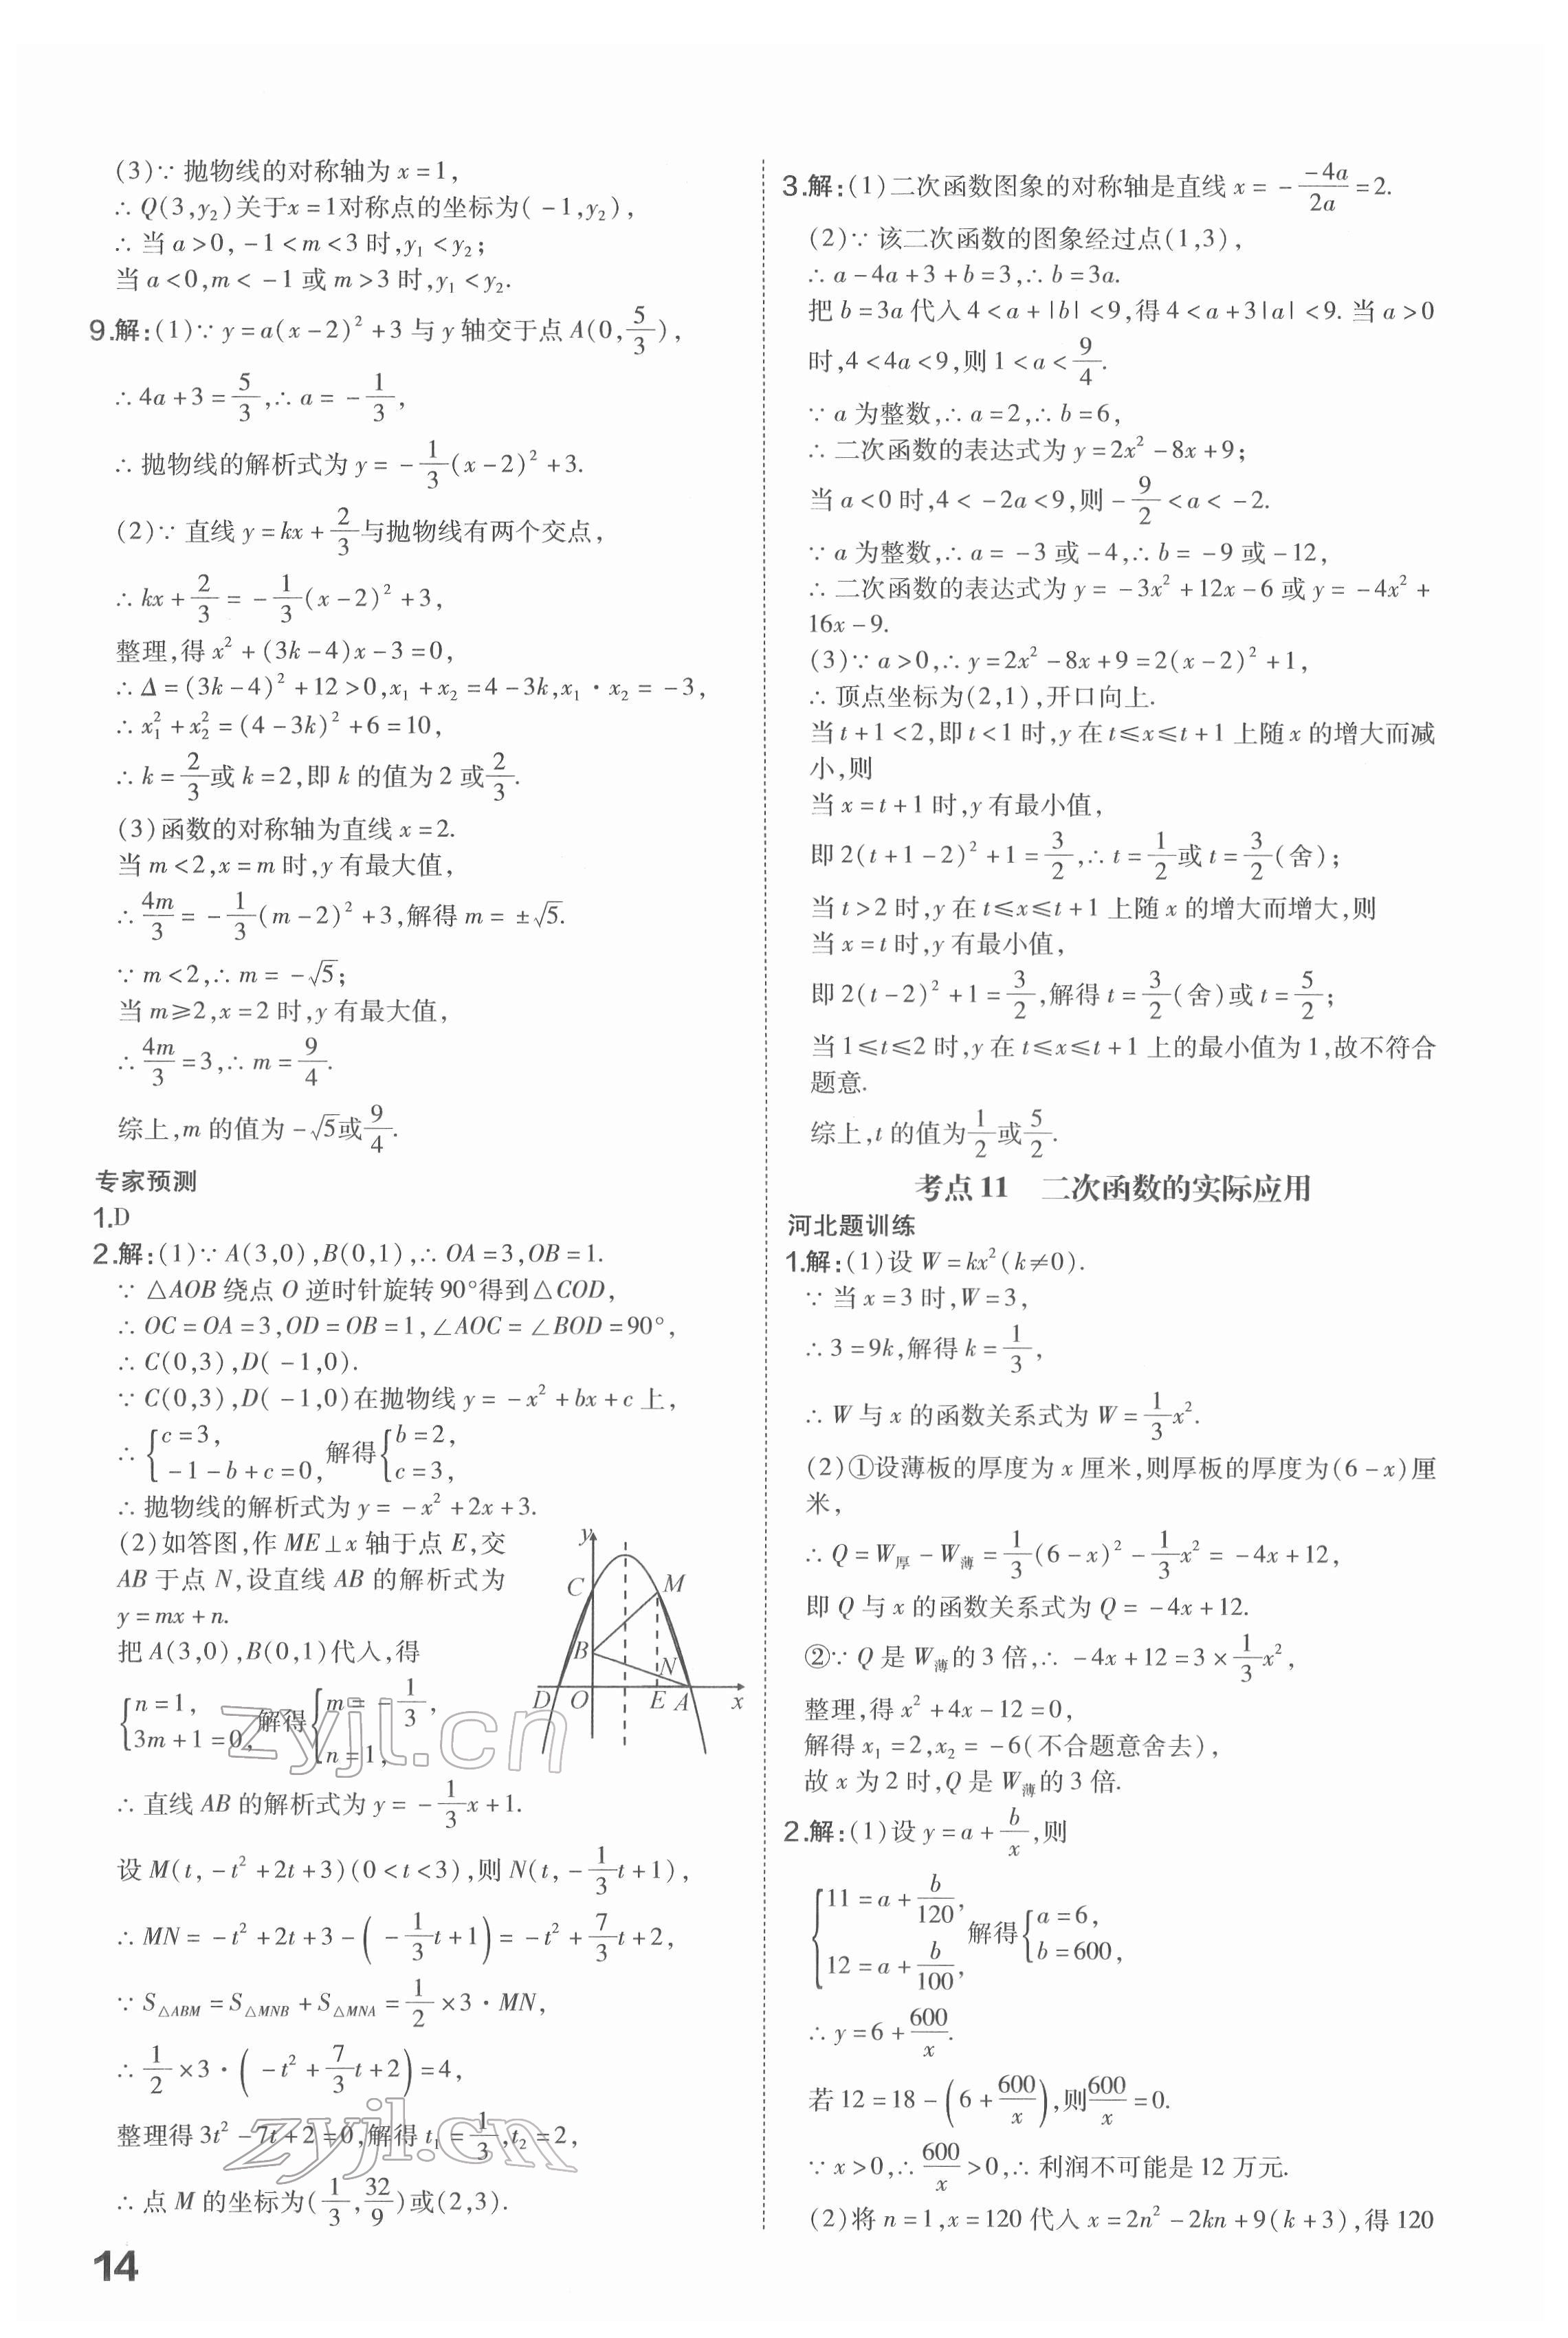 (3)∵ 抛物线的对称轴为 x = 1,
∴ Q(3,y₂)关于x = 1对称点的坐标为( -1,y₂),
∴ 当 a > 0, -1 < m < 3 时,y₁ < y₂;
当 a < 0,m < -1 或 m > 3 时,y₁ < y₂.
9.解:(1)∵ y = a(x - 2)² + 3 与 y 轴交于点 A(0,5/3),
∴ 4a + 3 = 5/3,∴ a = -1/3,
∴ 抛物线的解析式为 y = -1/3(x - 2)² + 3.
(2)∵ 直线 y = kx + 2/3与抛物线有两个交点,
∴ kx + 2/3 = -1/3(x - 2)² + 3,
整理,得 x² + (3k - 4)x - 3 = 0,
∴ Δ = (3k - 4)² + 12 > 0,x₁ + x₂ = 4 - 3k,x₁ · x₂ = -3,
∴ x₁² + x₂² = (4 - 3k)² + 6 = 10,
∴ k = 2/3或 k = 2,即 k 的值为 2 或2/3.
(3)函数的对称轴为直线 x = 2.
当 m < 2,x = m 时,y 有最大值,
∴ 4m/3 = -1/3(m - 2)² + 3,解得 m = ±√5.
∵ m < 2,∴ m = -√5;
当 m ≥ 2,x = 2 时,y 有最大值,
∴ 4m/3 = 3,∴ m = 9/4.
综上,m 的值为 -√5或9/4.
专家预测
1.D
2.解:(1)∵ A(3,0),B(0,1),∴ OA = 3,OB = 1.
∵ △AOB 绕点 O 逆时针旋转 90°得到△COD,
∴ OC = OA = 3,OD = OB = 1,∠AOC = ∠BOD = 90°,
∴ C(0,3),D( -1,0).
∵ C(0,3),D( -1,0)在抛物线 y = -x² + bx + c 上,
∴ { c = 3, -1 - b + c = 0, 解得{ b = 2, c = 3,
∴ 抛物线的解析式为 y = -x² + 2x + 3.
(2)如答图,作 ME⊥x 轴于点 E,交
AB 于点 N,设直线 AB 的解析式为
y = mx + n.
把 A(3,0),B(0,1)代入,得
{ n = 1, 3m + 1 = 0, 解得{ m = -1/3, n = 1,
y
C
M
B
N
D
O
E
A
x
∴ 直线 AB 的解析式为 y = -1/3x + 1.
设 M(t, -t² + 2t + 3)(0 < t < 3),则 N(t, -1/3t + 1),
∴ MN = -t² + 2t + 3 - ( -1/3t + 1) = -t² + 7/3t + 2,
∵ S△ABM = S△MNB + S△MNA = 1/2 × 3 · MN,
∴ 1/2 × 3 · ( -t² + 7/3t + 2) = 4,
整理得 3t² - 7t + 2 = 0,解得 t₁ = 1/3,t₂ = 2,
∴ 点 M 的坐标为(1/3,32/9)或(2,3).
14
3.解:(1)二次函数图象的对称轴是直线 x = - -4a/2a = 2.
(2)∵ 该二次函数的图象经过点(1,3),
∴ a - 4a + 3 + b = 3,∴ b = 3a.
把 b = 3a 代入 4 < a + |b| < 9,得 4 < a + 3|a| < 9. 当 a > 0
时,4 < 4a < 9,则 1 < a < 9/4.
∵ a 为整数,∴ a = 2,∴ b = 6,
∴ 二次函数的表达式为 y = 2x² - 8x + 9;
当 a < 0 时,4 < -2a < 9,则 -9/2 < a < -2.
∵ a 为整数,∴ a = -3 或 -4,∴ b = -9 或 -12,
∴ 二次函数的表达式为 y = -3x² + 12x - 6 或 y = -4x² +
16x - 9.
(3)∵ a > 0,∴ y = 2x² - 8x + 9 = 2(x - 2)² + 1,
∴ 顶点坐标为(2,1),开口向上.
当 t + 1 < 2,即 t < 1 时,y 在 t ≤ x ≤ t + 1 上随 x 的增大而减
小,则
当 x = t + 1 时,y 有最小值,
即 2(t + 1 - 2)² + 1 = 3/2,∴ t = 1/2或 t = 3/2(舍);
当 t > 2 时,y 在 t ≤ x ≤ t + 1 上随 x 的增大而增大,则
当 x = t 时,y 有最小值,
即 2(t - 2)² + 1 = 3/2,解得 t = 3/2(舍)或 t = 5/2;
当 1 ≤ t ≤ 2 时,y 在 t ≤ x ≤ t + 1 上的最小值为 1,故不符合
题意.
综上,t 的值为1/2或5/2.
考点 11 二次函数的实际应用
河北题训练
1.解:(1)设 W = kx²(k ≠ 0).
∵ 当 x = 3 时,W = 3,
∴ 3 = 9k,解得 k = 1/3,
∴ W 与 x 的函数关系式为 W = 1/3x².
(2)①设薄板的厚度为 x 厘米,则厚板的厚度为(6 - x)厘
米,
∴ Q = W厚 - W薄 = 1/3(6 - x)² - 1/3x² = -4x + 12,
即 Q 与 x 的函数关系式为 Q = -4x + 12.
②∵ Q 是 W薄的 3 倍,∴ -4x + 12 = 3 × 1/3x²,
整理,得 x² + 4x - 12 = 0,
解得 x₁ = 2,x₂ = -6(不合题意舍去),
故 x 为 2 时,Q 是 W薄的 3 倍.
2.解:(1)设 y = a + b/x,则
{ 11 = a + b/120, 12 = a + b/100, 解得{ a = 6, b = 600,
∴ y = 6 + 600/x.
若 12 = 18 - (6 + 600/x),则600/x = 0.
∵ x > 0,∴ 600/x > 0,∴ 利润不可能是 12 万元.
(2)将 n = 1,x = 120 代入 x = 2n² - 2kn + 9(k + 3),得 120
zyjl.cn
zyjl.cn